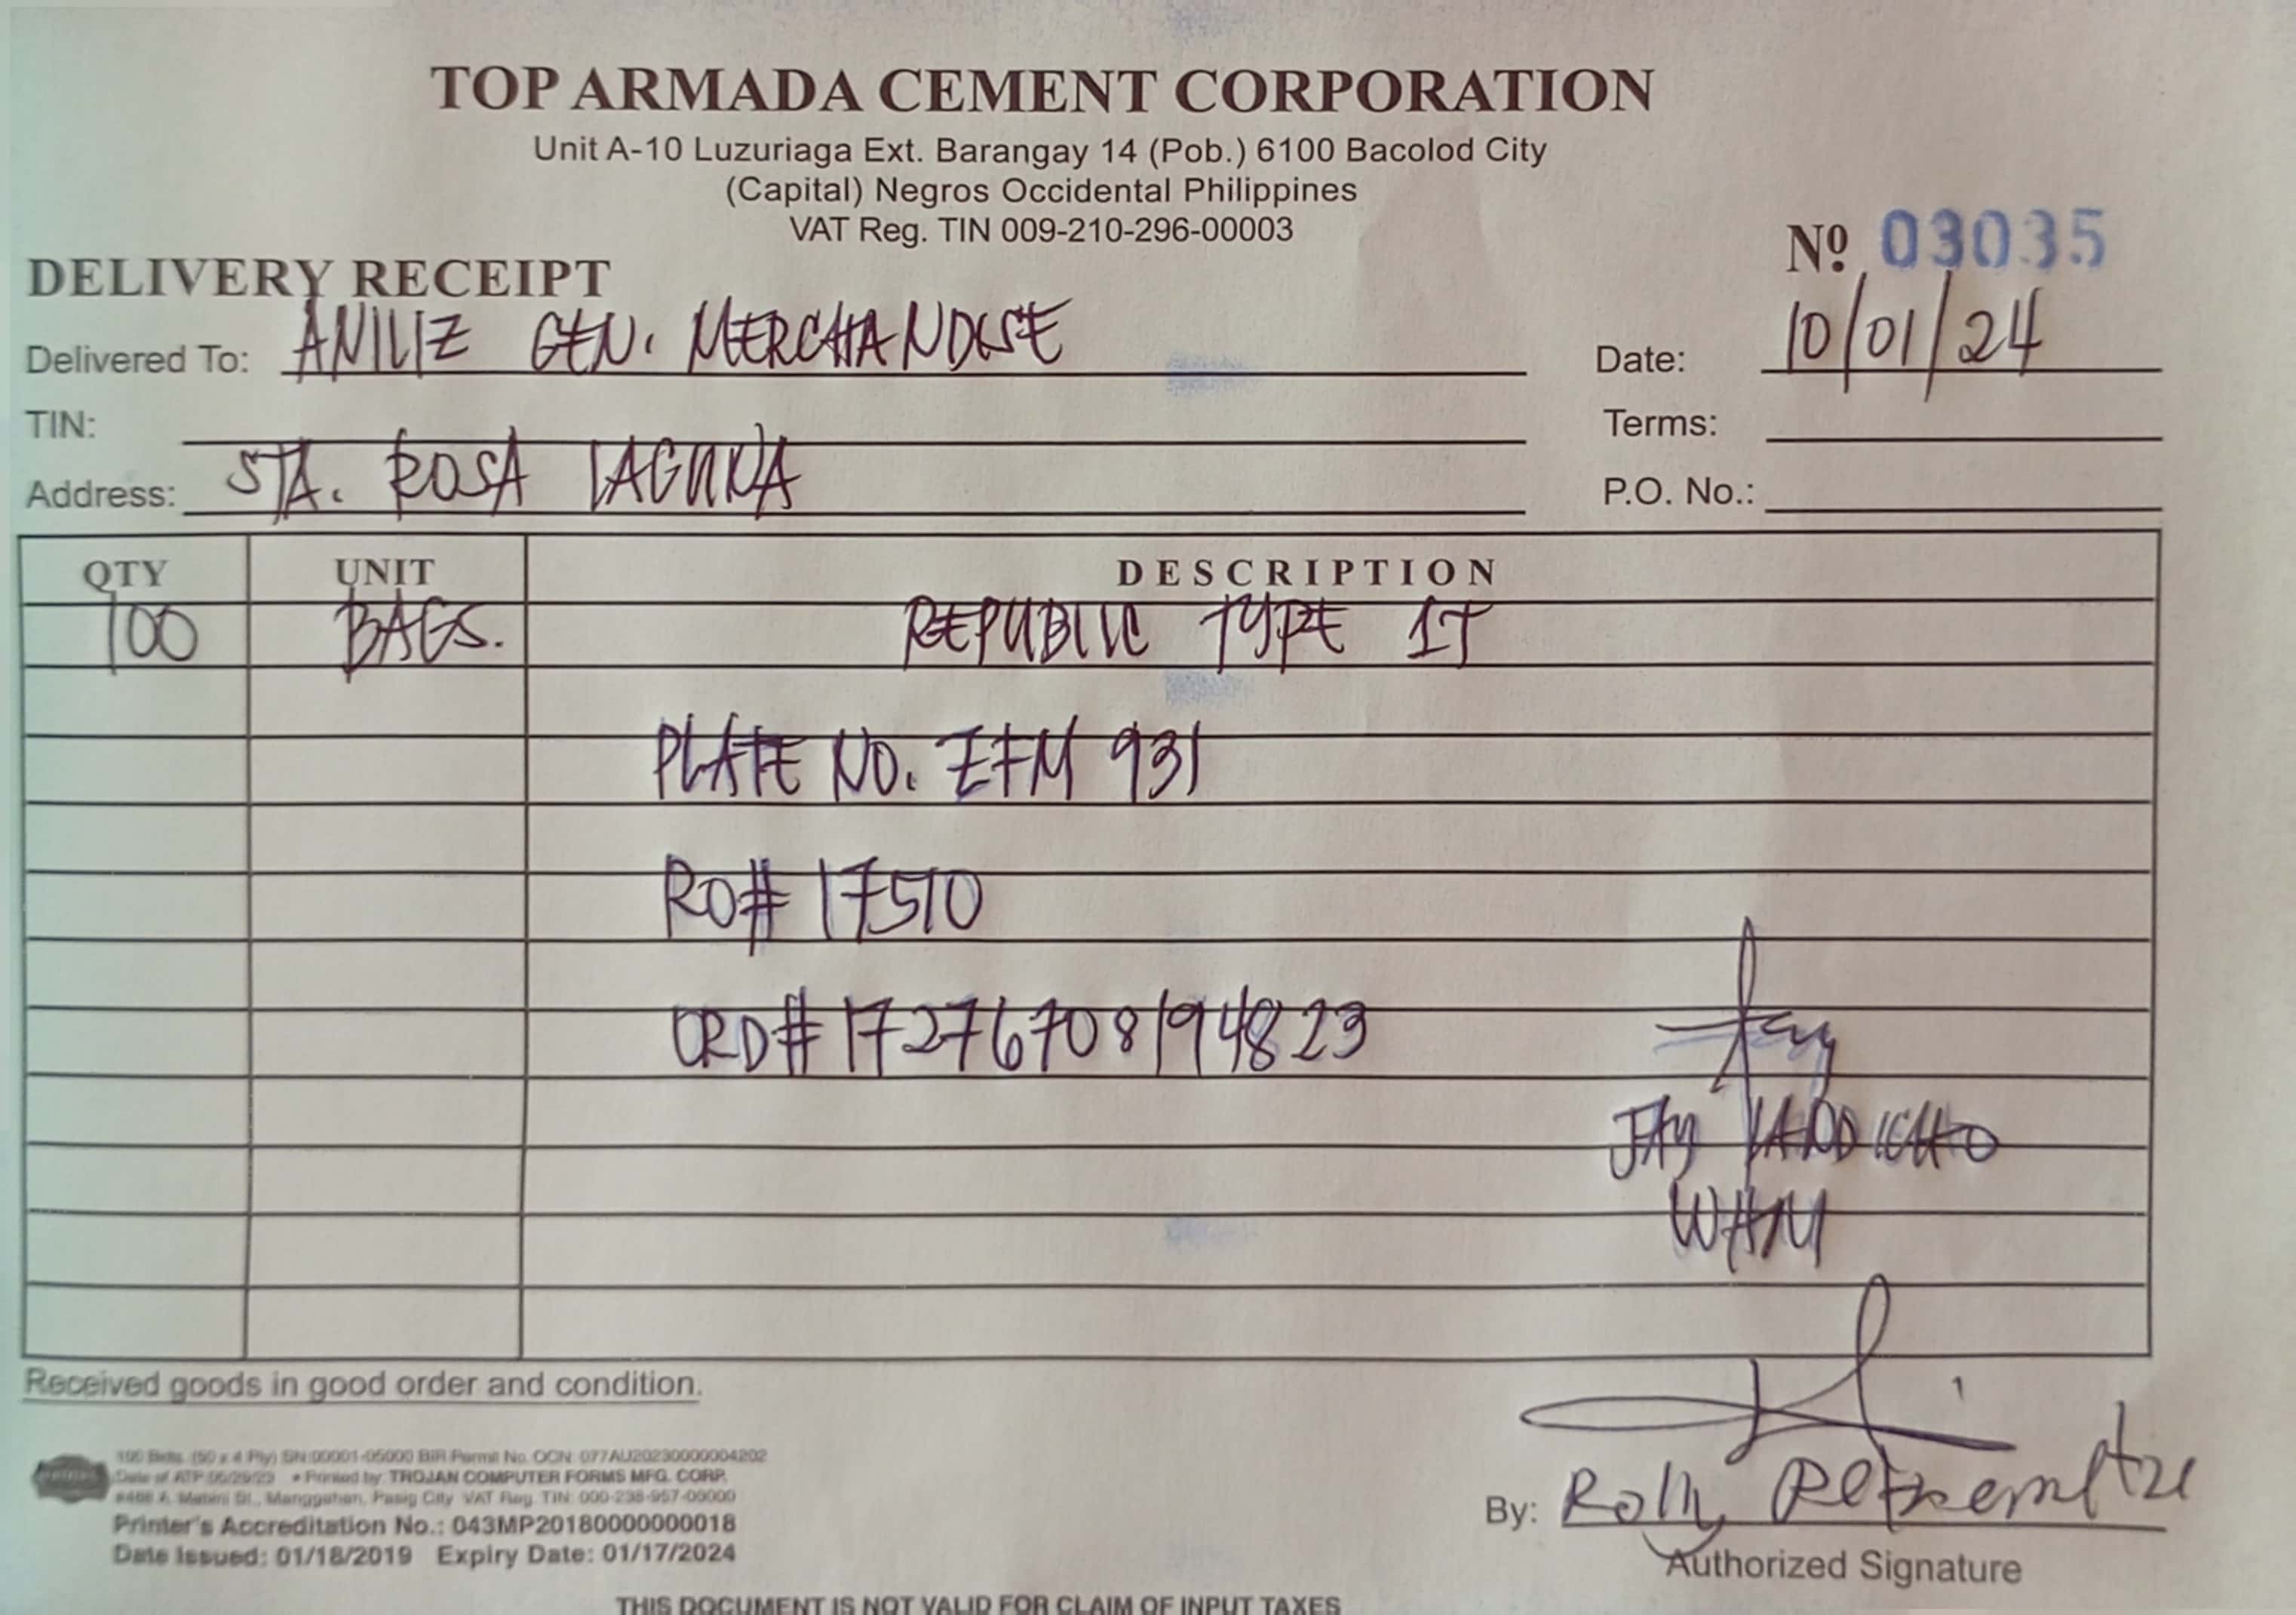 TOP ARMADA CEMENT CORPORATION
Unit A-10 Luzuriaga Ext. Barangay 14 (Pob.) 6100 Bacolod City
(Capital) Negros Occidental Philippines
VAT Reg. TIN 009-210-296-00003
Nº 03035
DELIVERY RECEIPT
Delivered To: ANILIZ GEN. MERCHANDISE Date: 10/01/24
TIN: Terms:
Address: STA. ROSA LAGUNA P.O. No.:
QTY UNIT DESCRIPTION
100 BAGS. REPUBLIC TYPE 1T
PLATE NO. ZFM 931
RO# 17510
ORD# 17276708194823
JAY LANDICHO
WHM
Received goods in good order and condition.
100 Bklts. (50 x 4 Ply) SN:00001-05000 BIR Permit No. OCN: 077AU20230000004202
Date of ATP 05/29/23 • Printed by: TROJAN COMPUTER FORMS MFG. CORP.
Manggahan, Pasig City VAT Reg. TIN: 000-238-957-00000
Printer's Accreditation No.: 043MP20180000000018
Date Issued: 01/18/2019 Expiry Date: 01/17/2024
By: Rolly
Authorized Signature
THIS DOCUMENT IS NOT VALID FOR CLAIM OF INPUT TAXES